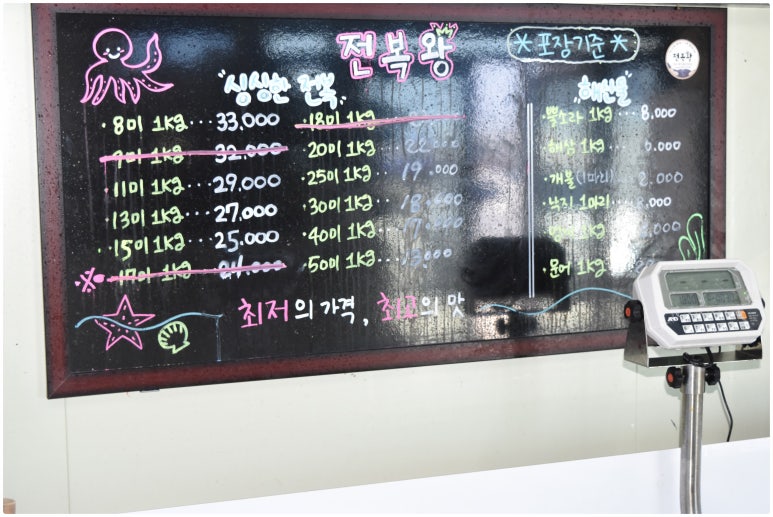 전복왕
*포장기준*
전복왕
"싱싱한 전복"
·8미 1kg ··· 33,000
·9미 1kg ··· 32,000
·11미 1kg ··· 29,000
·13미 1kg ··· 27,000
·15미 1kg ··· 25,000
※·17미 1kg ··· 24,000
·18미 1kg
·20미 1kg ··· 22,000
·25미 1kg ··· 19,000
·30미 1kg ··· 18,000
·40미 1kg ··· 17,000
·50미 1kg
"해산물"
·뿔소라 1kg ··· 8,000
·해삼 1kg
·개불(1마리) 2,000
·낙지 1마리
·문어 1kg
최저의 가격, 최고의 맛